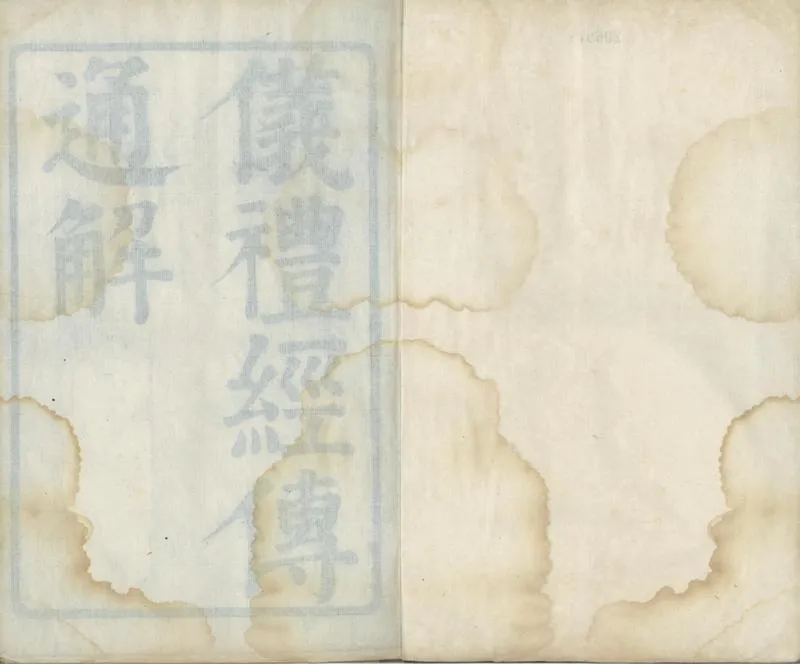 儀禮經傳
通解